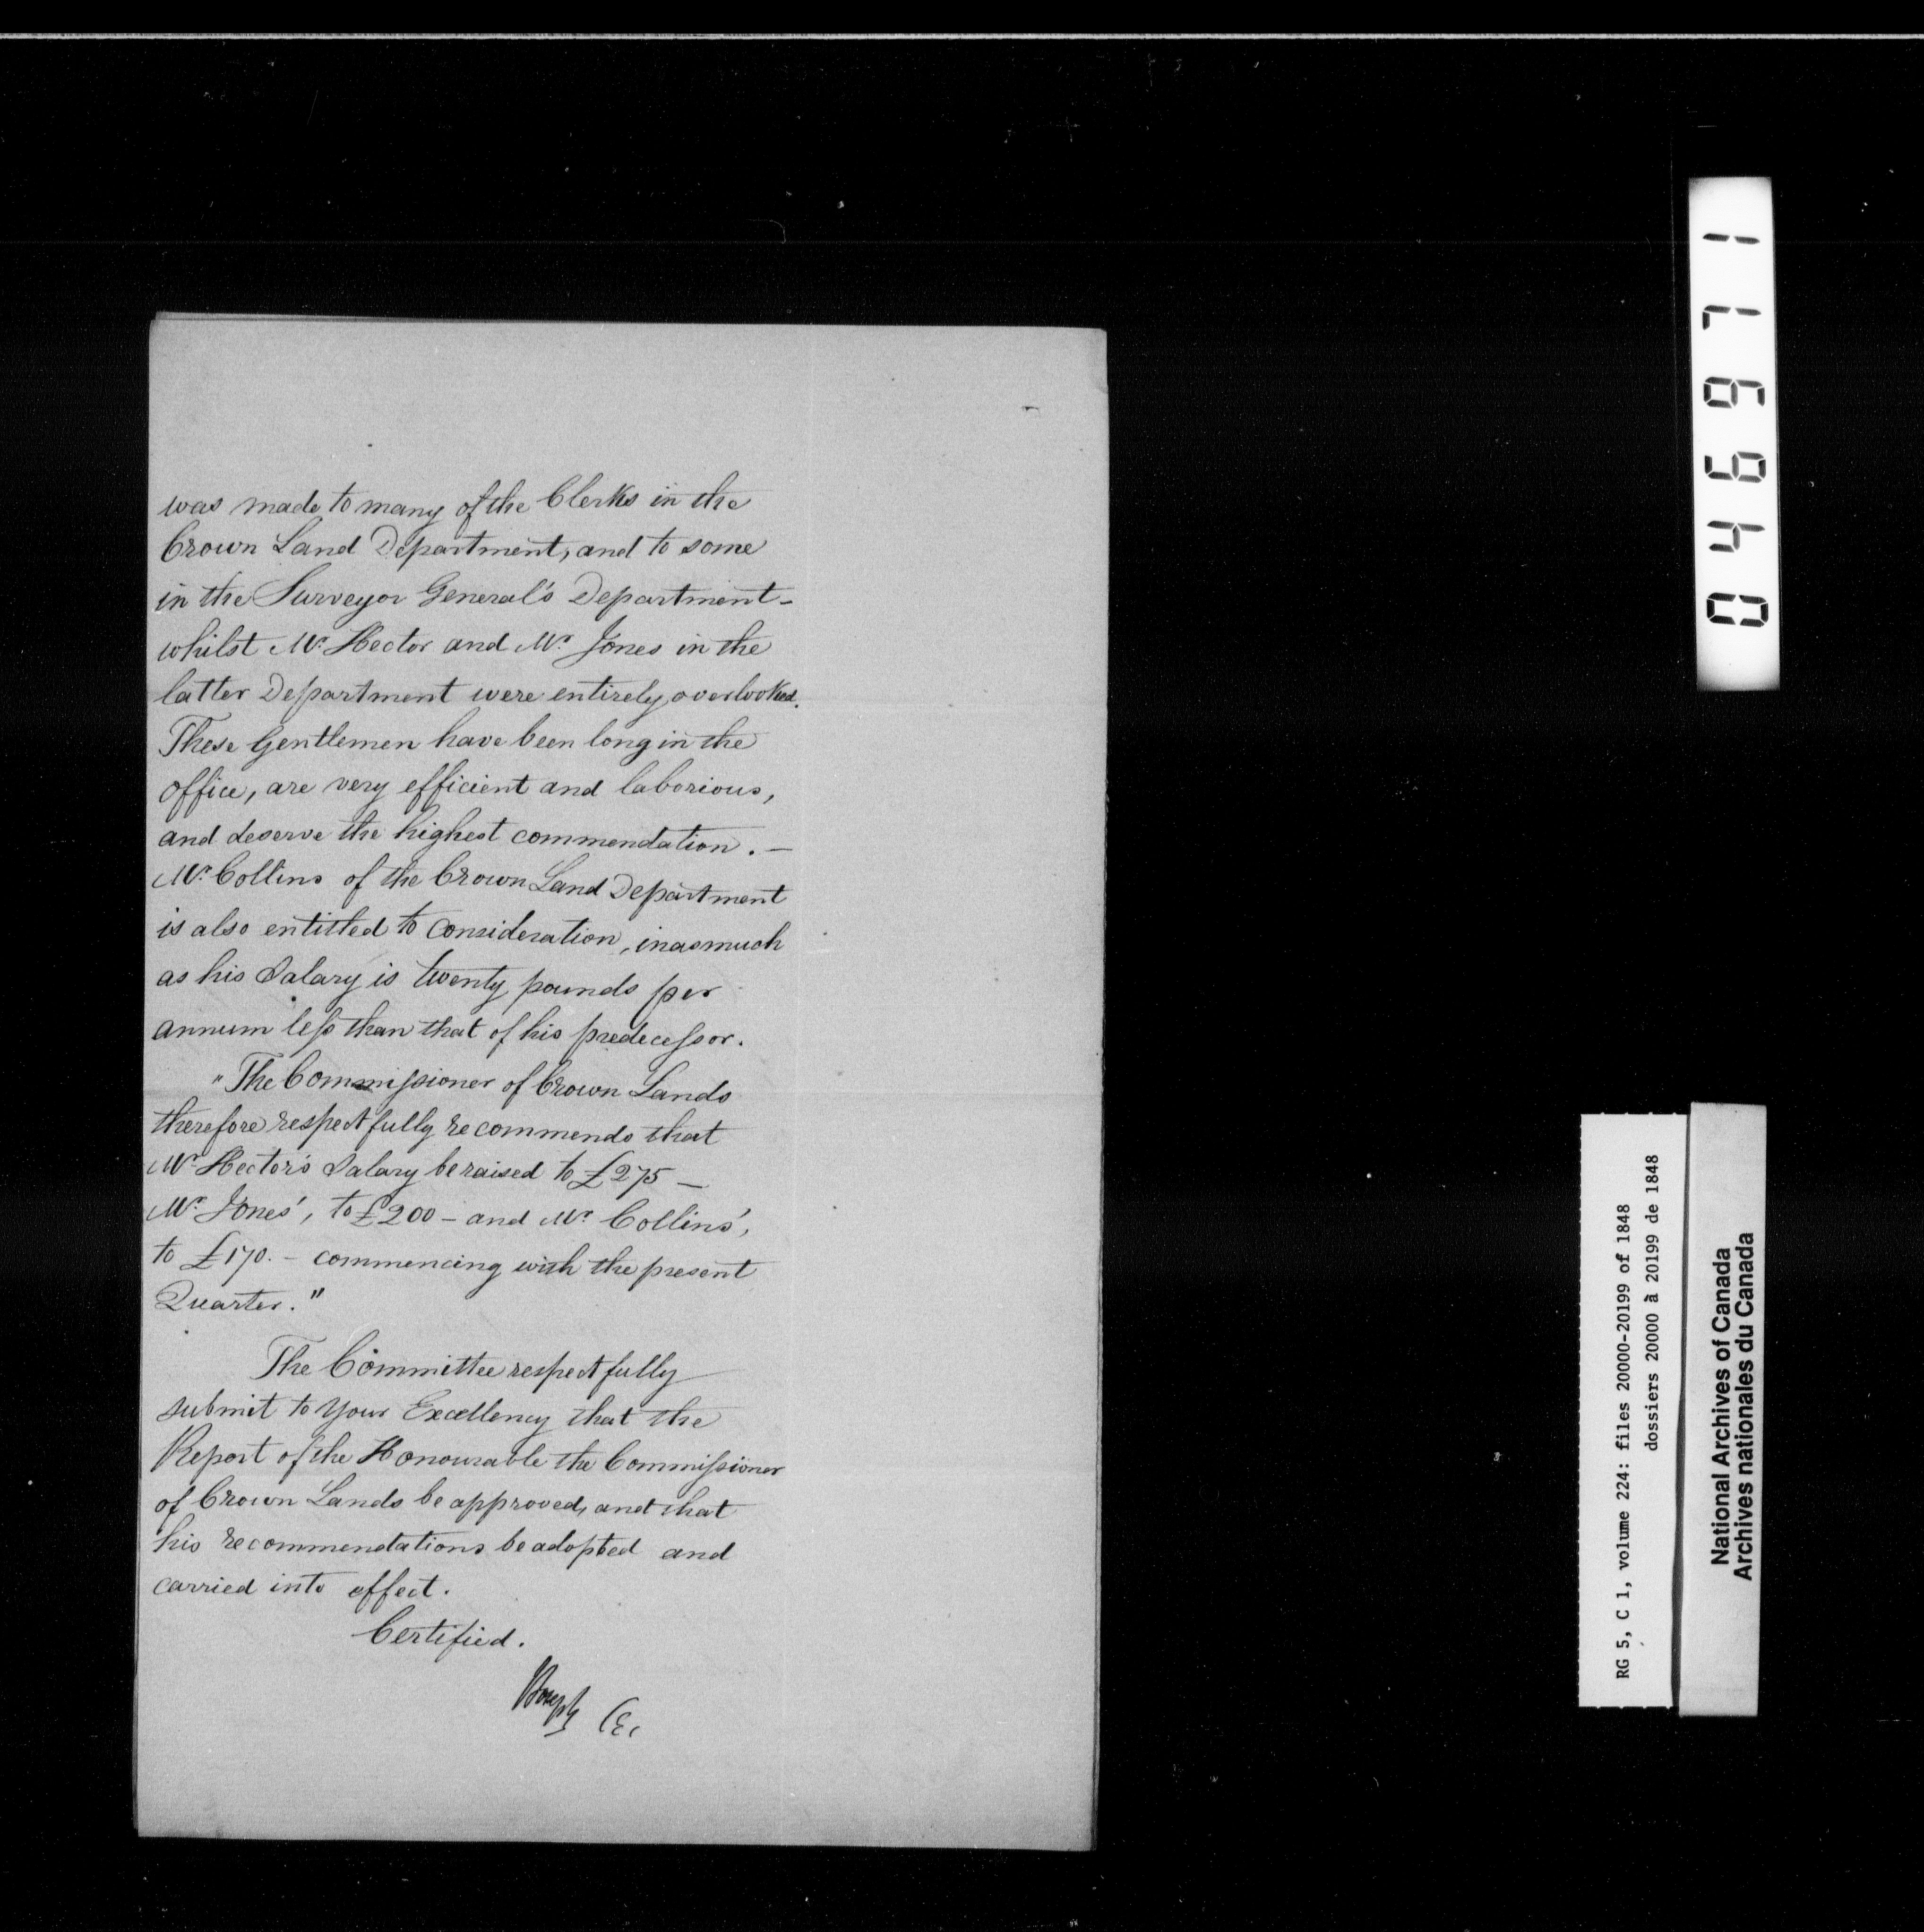 was made to many of the Clerks in the
Crown Land Department, and to some
in the Surveyor General's Department -
whilst Mr. Hector and Mr. Jones in the
latter Department were entirely overlooked.
These Gentlemen have been long in the
office, are very efficient and laborious,
and deserve the highest commendation. -
Mr. Collins of the Crown Land Department
is also entitled to consideration, inasmuch
as his Salary is twenty pounds per
annum less than that of his predecessor.
"The Commissioner of Crown Lands
therefore respectfully recommends that
Mr. Hector's Salary be raised to £275 -
Mr. Jones', to £200 - and Mr. Collins',
to £170. - commencing with the present
Quarter."
The Committee respectfully
submit to Your Excellency that the
Report of the Honourable the Commissioner
of Crown Lands be approved, and that
his recommendations be adopted and
carried into effect.
Certified.
Joseph
046971
RG 5, C 1, volume 224: files 20000-20199 of 1848
dossiers 20000 à 20199 de 1848
National Archives of Canada
Archives nationales du Canada